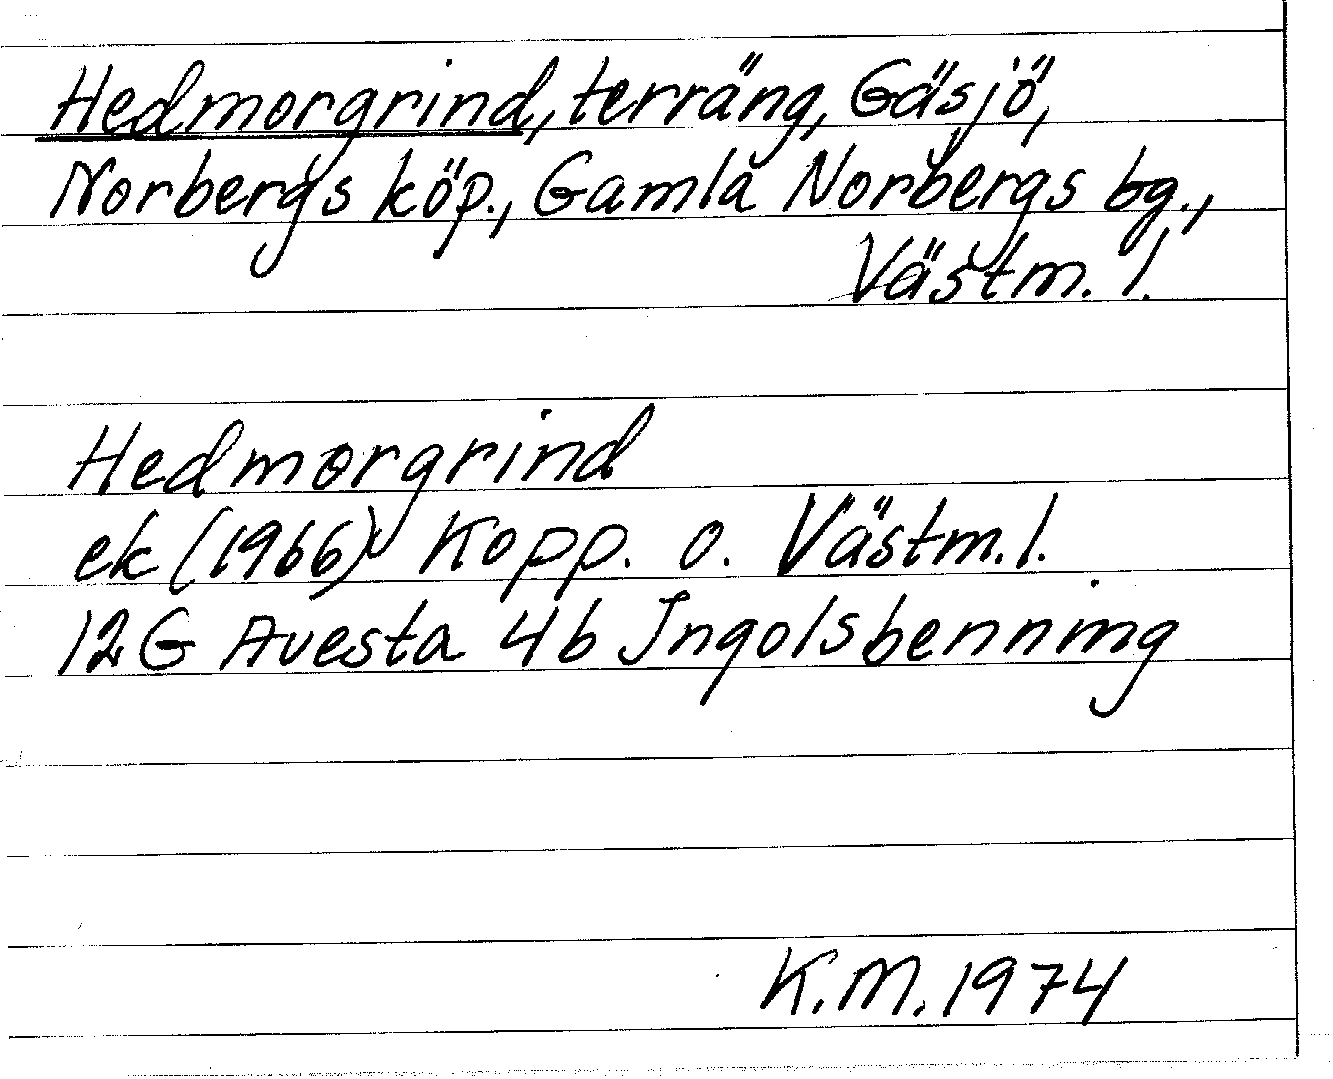 Hedmorgrind, terräng, Gäsjö,
Norbergs köp., Gamla Norbergs bg.,
Västm. l.
Hedmorgrind
ek (1966) Kopp. o. Västm. l.
12G Avesta 4b Ingolsbenning
K.M. 1974